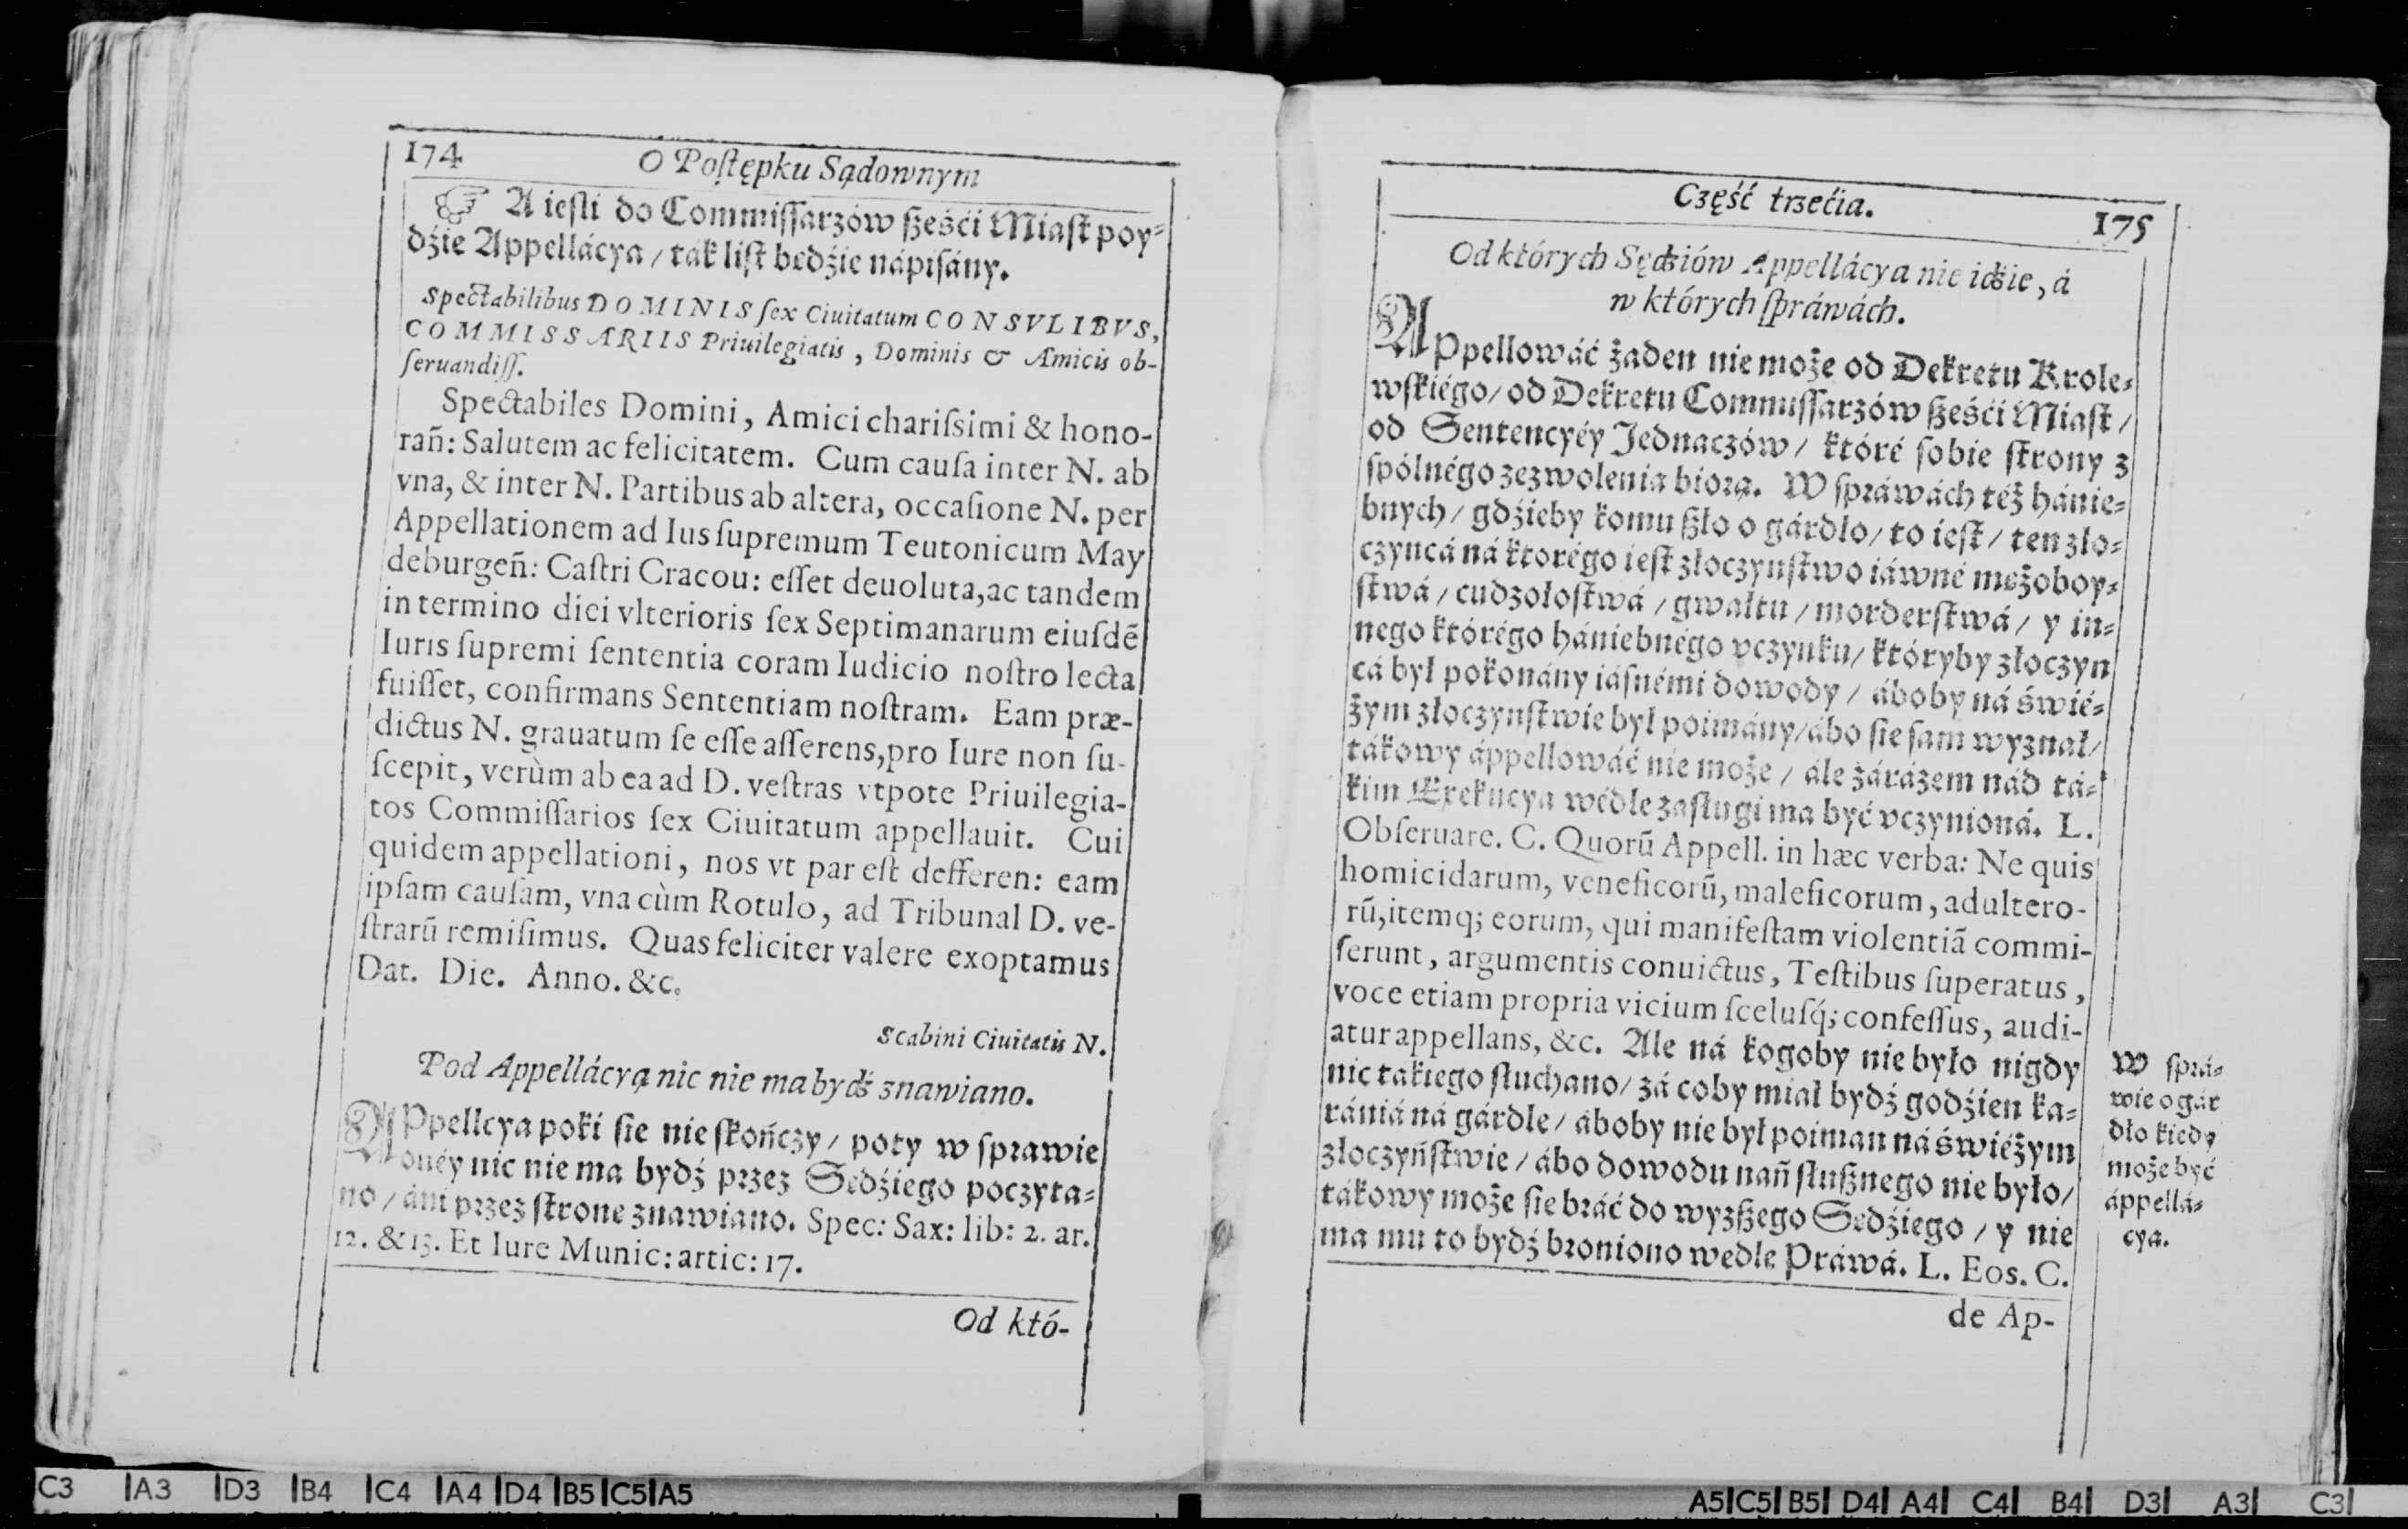 174 O Poſtępku Sądownym
☞ A ieſli do Commiſſarzów ſześći Miaſt poy-
dźie Appellácya / ták liſt bedźie nápiſány.
Spectabilibus DOMINIS ſex Ciuitatum CONSVLIBVS,
COMMISSARIIS Priuilegiatis, Dominis & Amicis ob-
ſeruandiſſ.
Spectabiles Domini, Amici chariſsimi & hono-
rañ: Salutem ac felicitatem. Cum cauſa inter N. ab
vna, & inter N. Partibus ab altera, occaſione N. per
Appellationem ad Ius ſupremum Teutonicum May
deburgeñ: Caſtri Cracou: eſſet deuoluta, ac tandem
in termino diei vlterioris ſex Septimanarum eiuſdẽ
Iuris ſupremi ſententia coram Iudicio noſtro lecta
fuiſſet, confirmans Sententiam noſtram. Eam præ-
dictus N. grauatum ſe eſſe aſſerens, pro Iure non ſu-
ſcepit, verùm ab ea ad D. veſtras vtpote Priuilegia-
tos Commiſſarios ſex Ciuitatum appellauit. Cui
quidem appellationi, nos vt par eſt defferen: eam
ipſam cauſam, vna cùm Rotulo, ad Tribunal D. ve-
ſtrarũ remiſimus. Quas feliciter valere exoptamus
Dat. Die. Anno. &c.
Scabini Ciuitatis N.
Pod Appellácyą nic nie ma bydź znawiano.
APpellcya poki ſie nie ſkończy / poty w ſprawie
onéy nic nie ma bydź przez Sedźiego poczyta-
no / áni przez ſtrone znawiano. Spec: Sax: lib: 2. ar.
12. & 13. Et Iure Munic: artic: 17.
Od któ-
Część trzećia. 175
Od których Sędźiów Appellácya nie idźie, á
w których ſpráwách.
APpellowáć żaden nie może od Dekretu Krole-
wſkiégo / od Dekretu Commiſſarzów ſześći Miaſt /
od Sentencyéy Jednaczów / któré ſobie ſtrony z
ſpólnégo zezwolenia biorą. W ſpráwách téż hánie-
bnych / gdźieby komu ſzło o gárdło / to ieſt / ten zło-
czyncá ná ktorégo ieſt złoczynſtwo iáwné mężoboy-
ſtwá / cudzołoſtwá / gwałtu / morderſtwá / y in-
nego którégo hániebnégo vczynku / któryby złoczyn
cá był pokonány iáſnémi dowody / áboby ná świé-
żym złoczynſtwie był poimány / ábo ſie ſam wyznał /
tákowy áppellowáć nie może / ále zárázem nád tá-
kim Exekucya wédle zaſługi ma być vczynioná. L.
Obſeruare. C. Quorũ Appell. in hæc verba: Ne quis
homicidarum, veneficorũ, maleficorum, adultero-
rũ, itemq; eorum, qui manifeſtam violentiã commi-
ſerunt, argumentis conuictus, Teſtibus ſuperatus,
voce etiam propria vicium ſceluſq́; confeſſus, audi-
atur appellans, &c. Ale ná kogoby nie było nigdy
nic takiego ſłuchano / zá coby miał bydź godźien ka-
rániá ná gárdle / áboby nie był poiman ná świéżym
złoczyńſtwie / ábo dowodu nań ſłuſznego nie było /
tákowy może ſie bráć do wyzſzego Sedźiego / y nie
ma mu to bydź broniono wedle Práwá. L. Eos. C.
de Ap-
W ſprá-
wie o gár
dło kiedy
może być
áppellá-
cya.
C3 A3 D3 B4 C4 A4 D4 B5 C5 A5
A5 C5 B5 D4 A4 C4 B4 D3 A3 C3